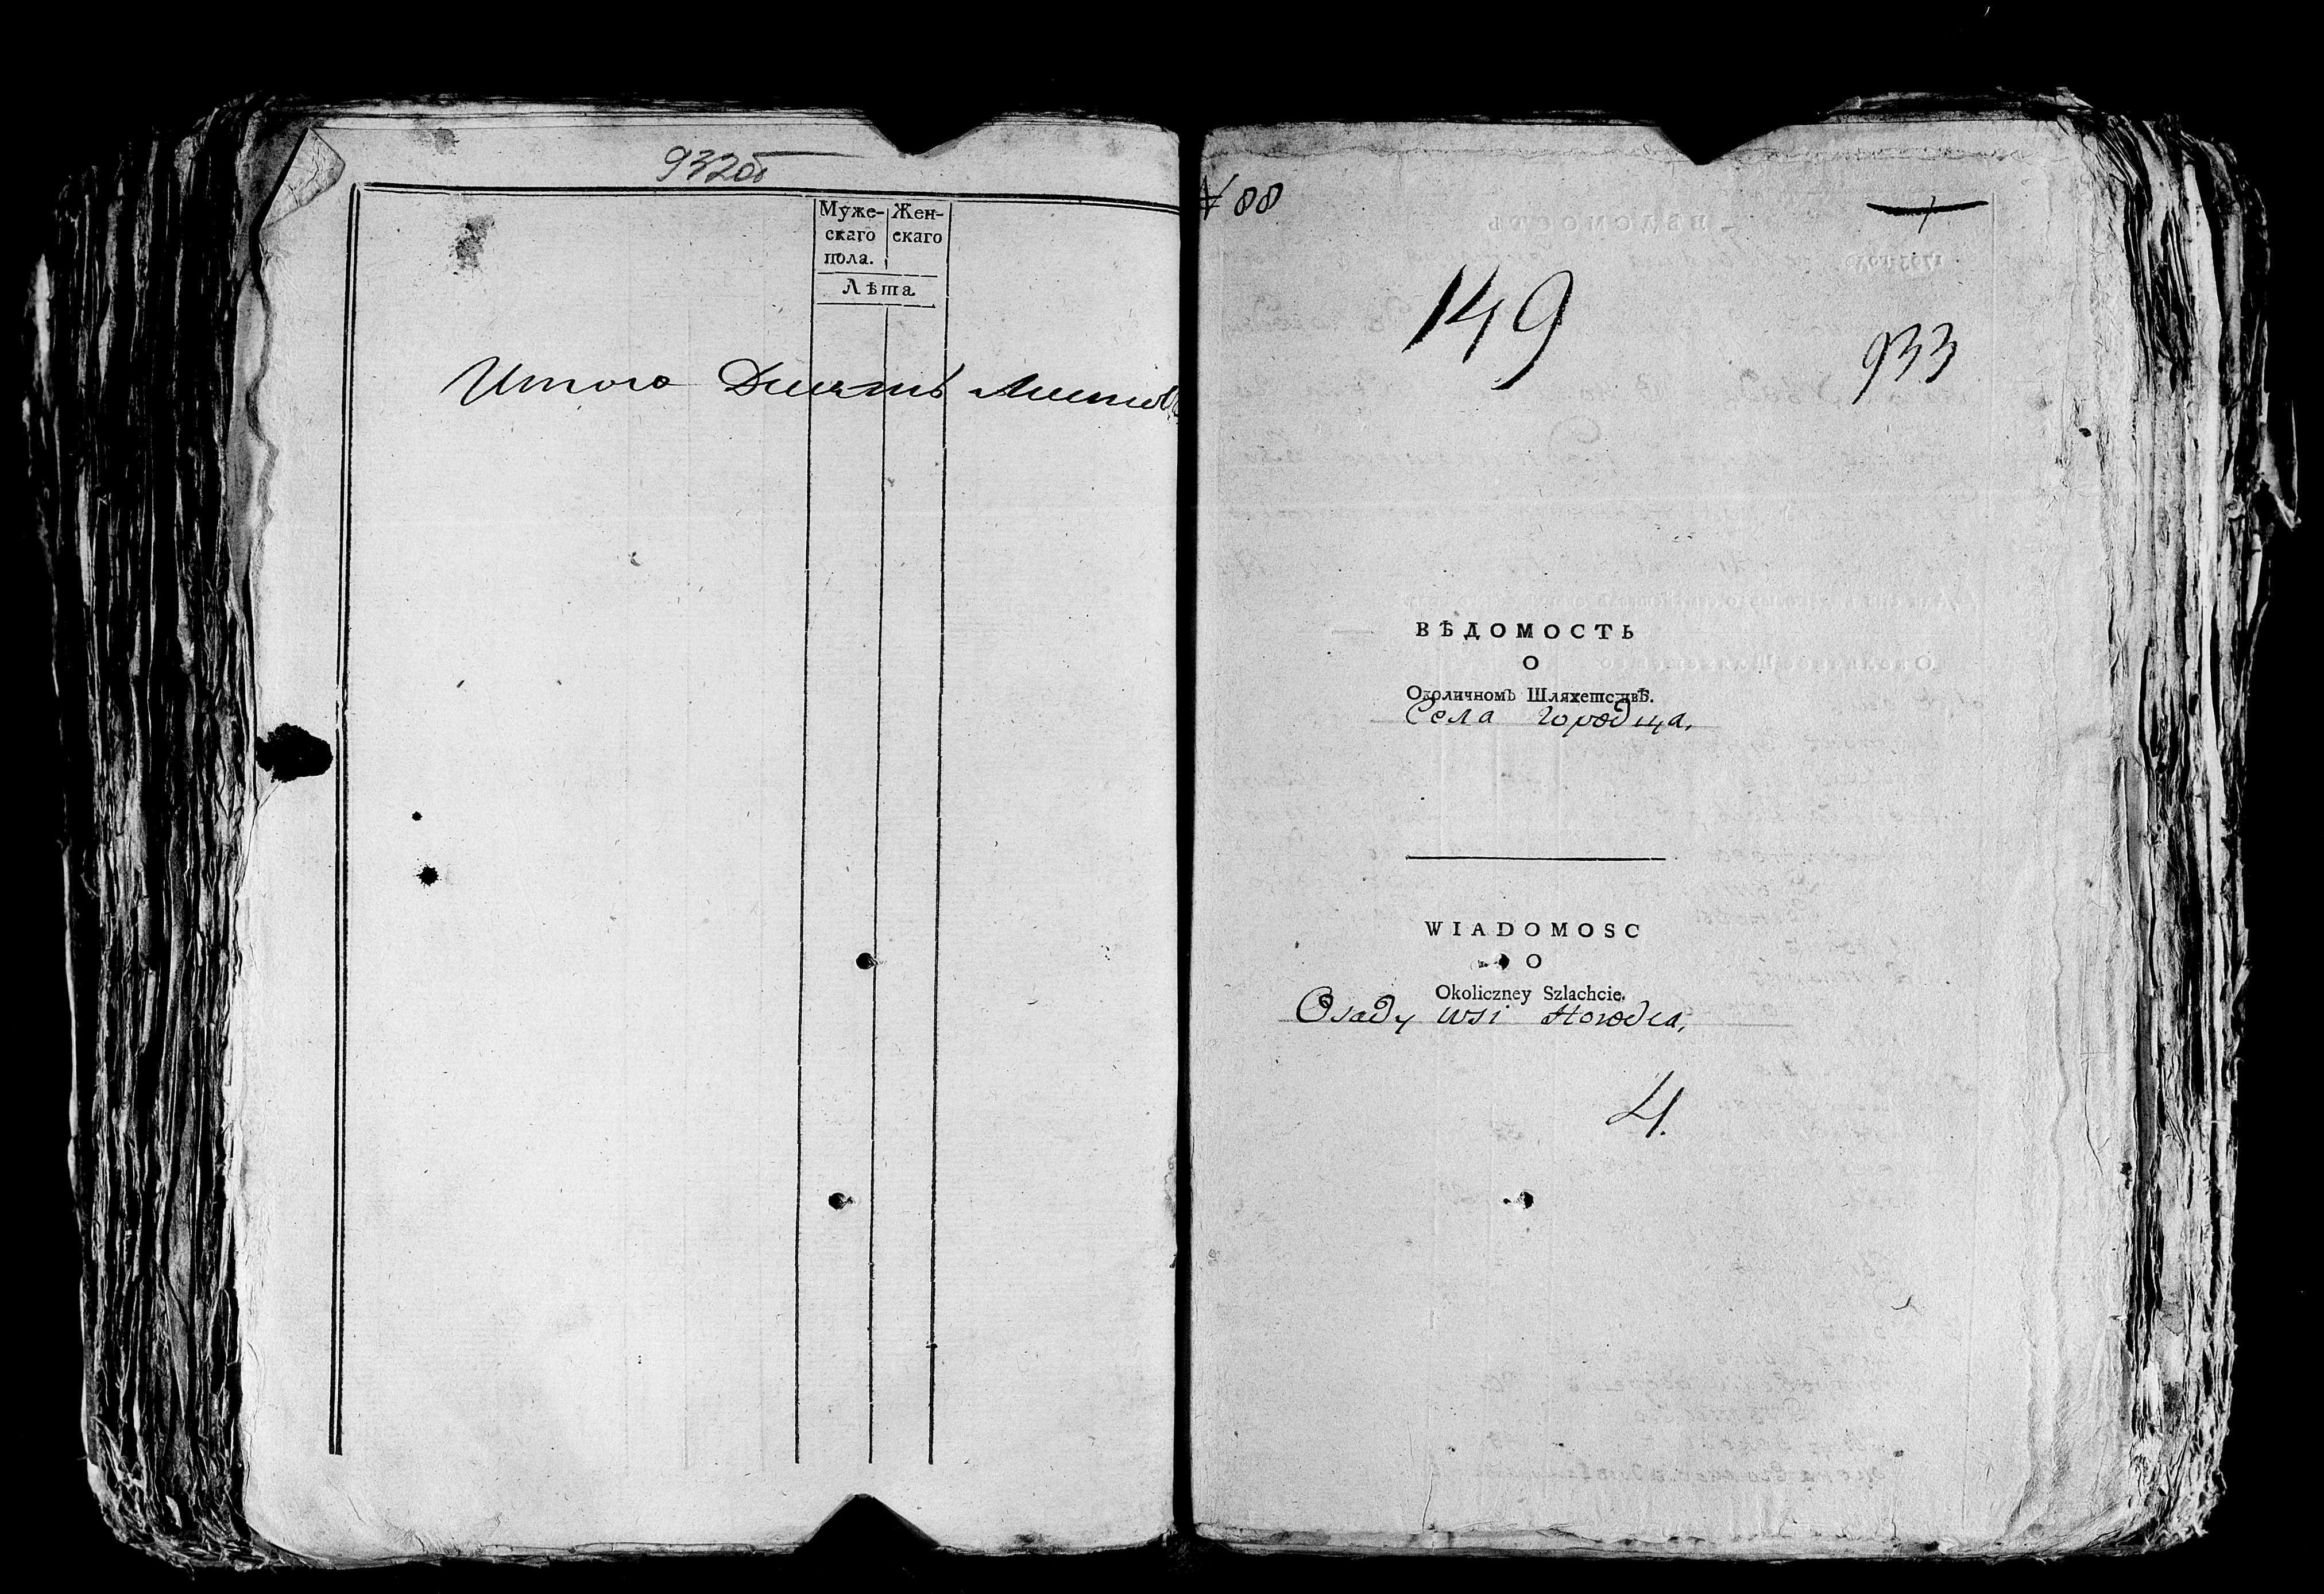 932об
Муже- Жен-
скаго скаго
пола.
Лѣта
Итого Десять Листовъ
№ 88
149
933
ВѢДОМОСТЬ
О
Околичномъ Шляхетствѣ.
Села Городца,
WIADOMOSC
O
Okoliczney Szlachcie,
Osady wsi Horodca,
4.